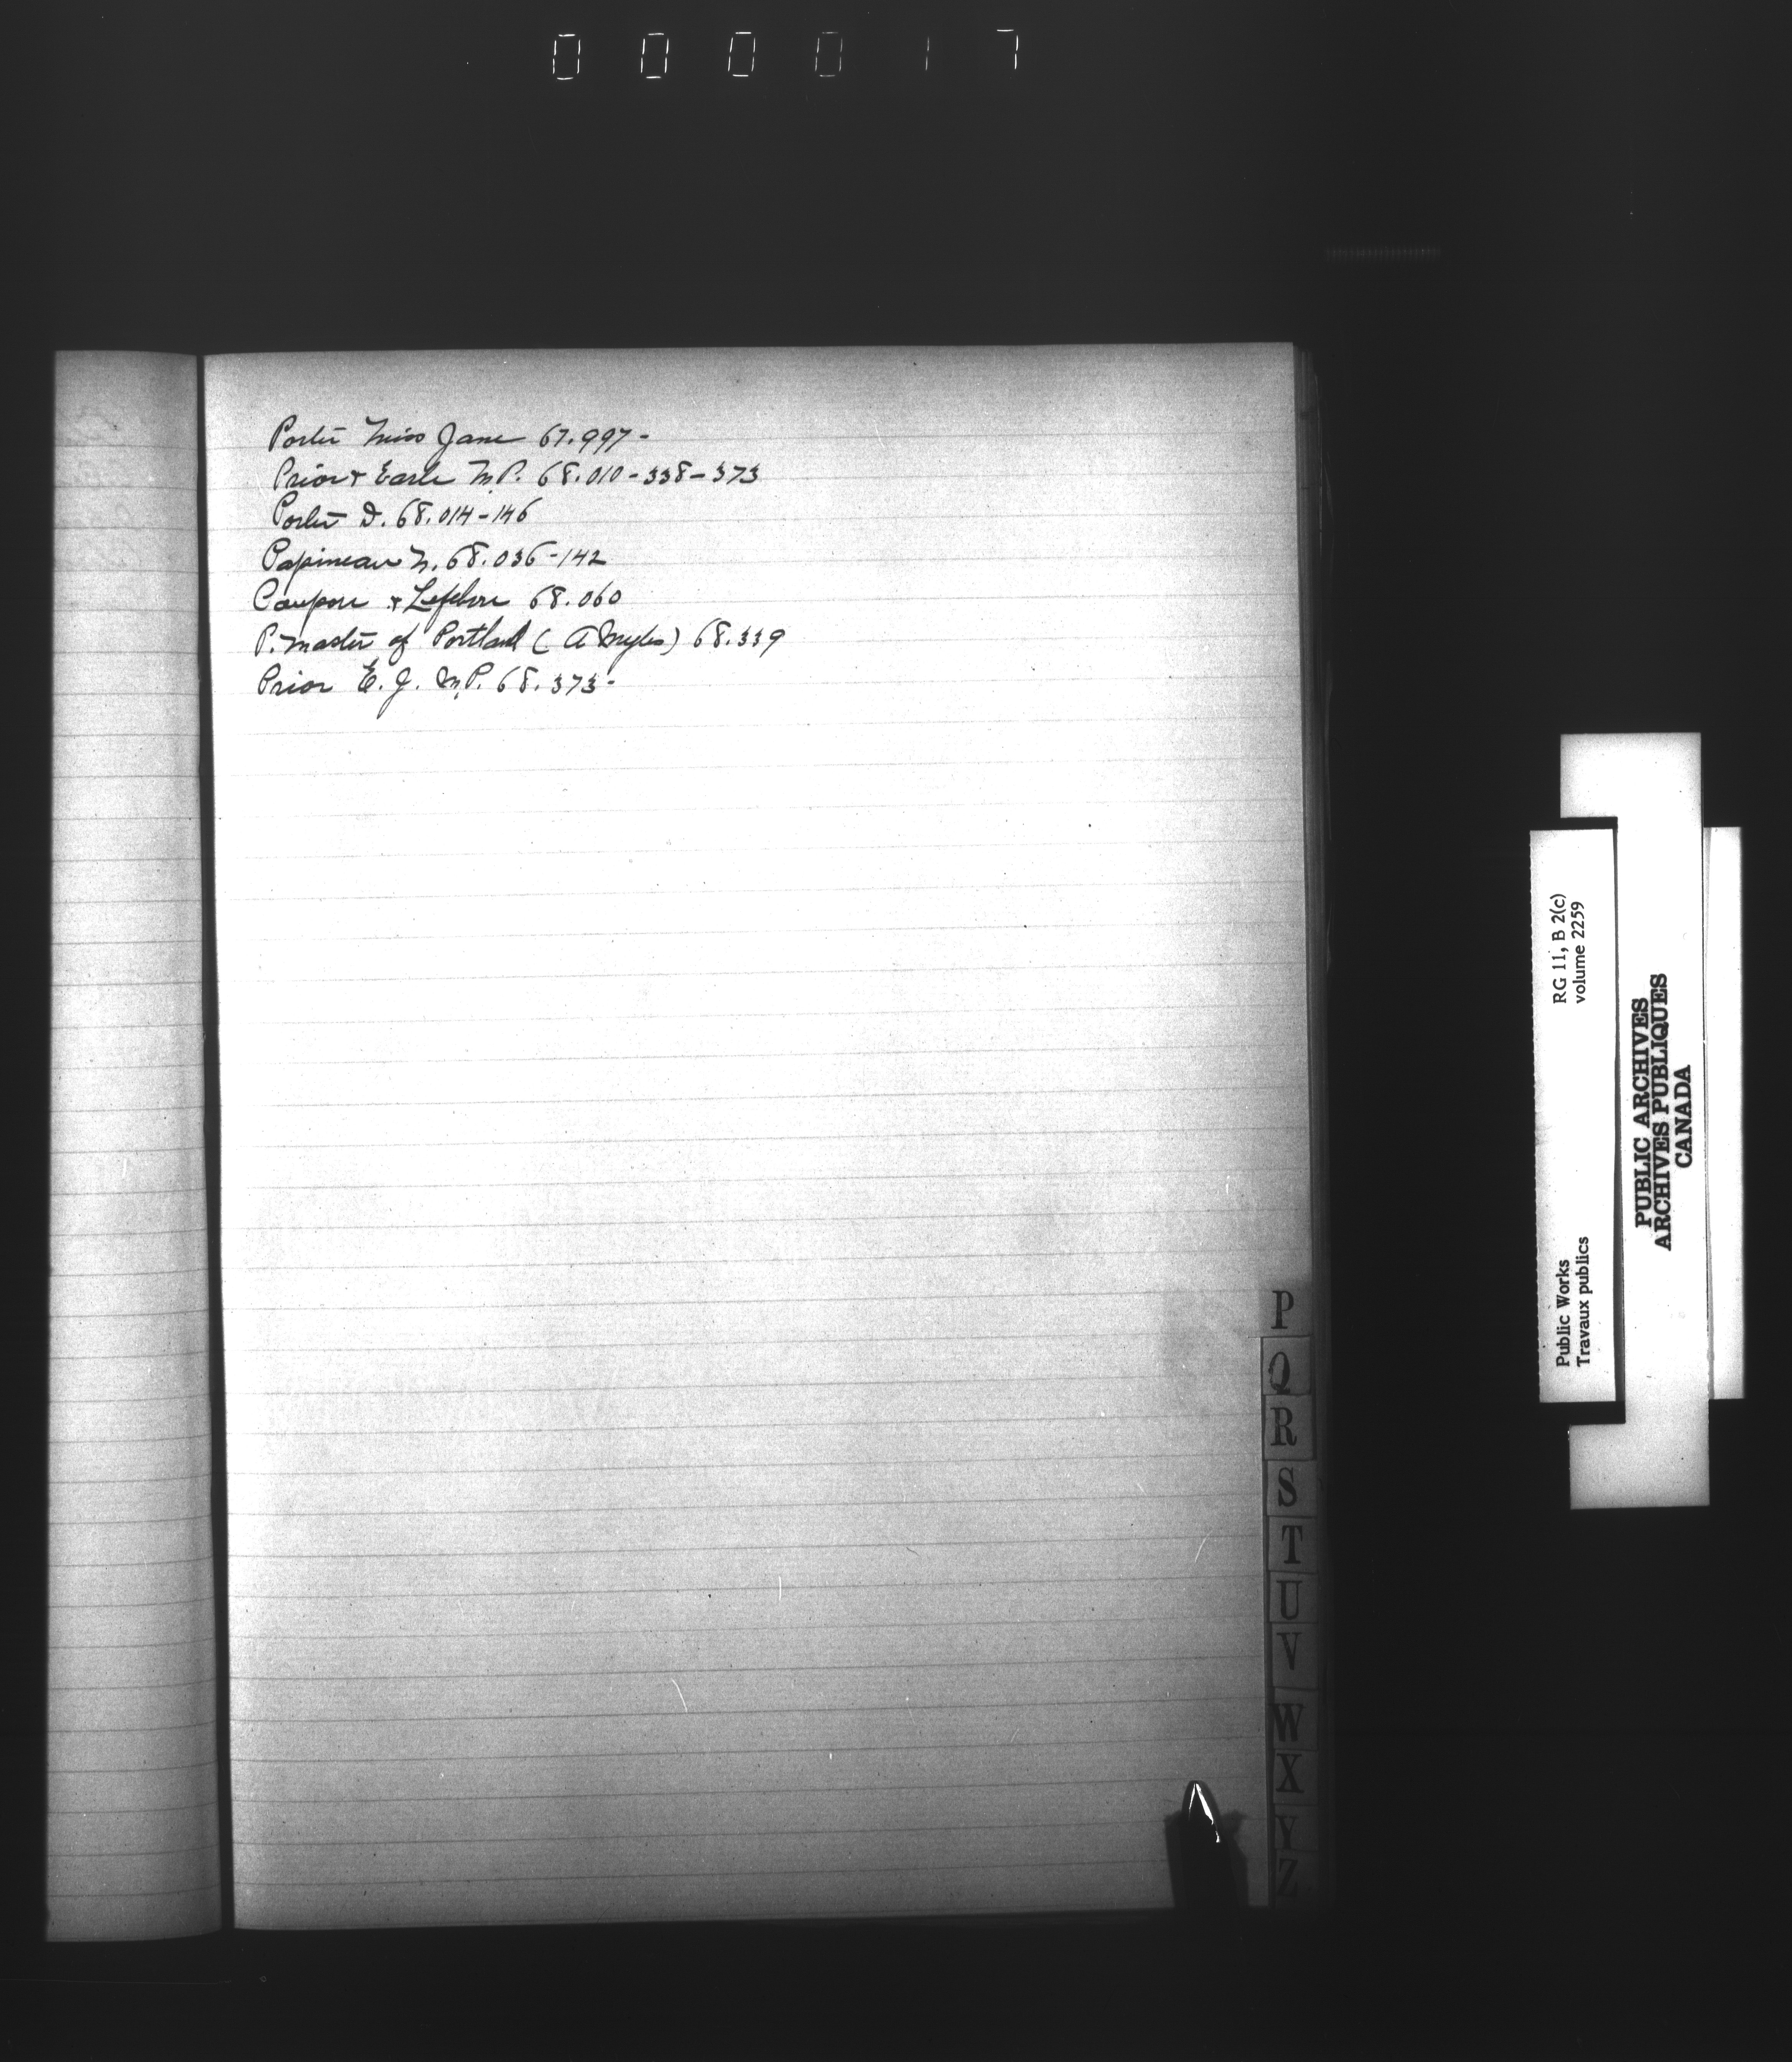 000017
Porter Miss Jane 67.997-
Prior & Earle M.P. 68.010-338-373
Porter D. 68.014-146
Papineau N. 68.036-142
& Lefebvre 68.060
P. Master of Portland ( A Myles) 68.339
Prior E. G. M.P. 68.373-
P
Q
R
S
T
U
V
W
X
Y
Z
Public Works
Travaux publics
RG 11, B 2(c)
volume 2259
PUBLIC ARCHIVES
ARCHIVES PUBLIQUES
CANADA